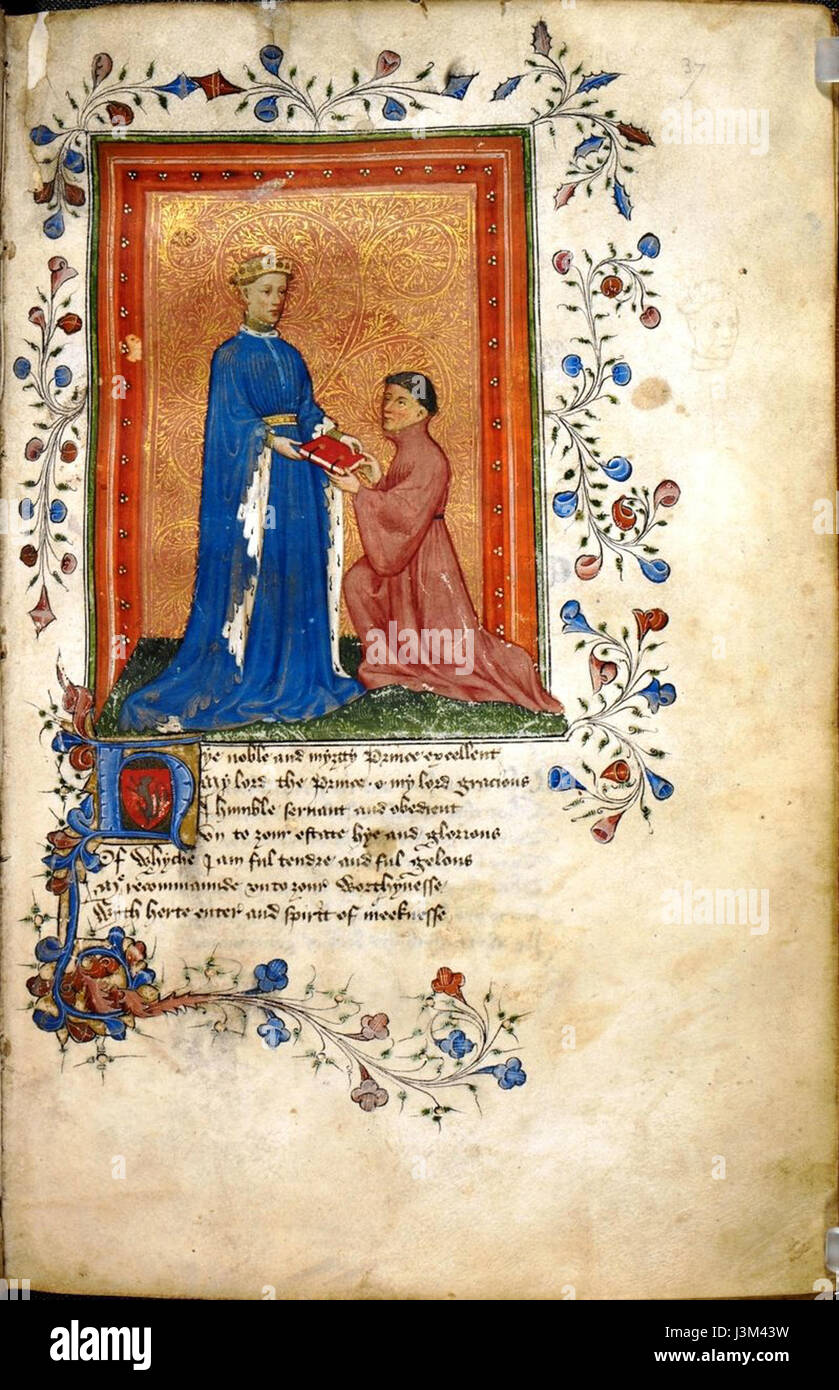 37
Hye noble and myȝthy Prince excellent
My lord the Prince · o my lord gracious
I humble seruant and obedient
Vn to ȝour estate hye and glorious
Of Whyche I am ful tendre and ful gelous
Me recommaunde vnto ȝour Worthynesse
Wyth herte enter and spirit of meeknesse
a alamy stock photo
J3M43W
www.alamy.com